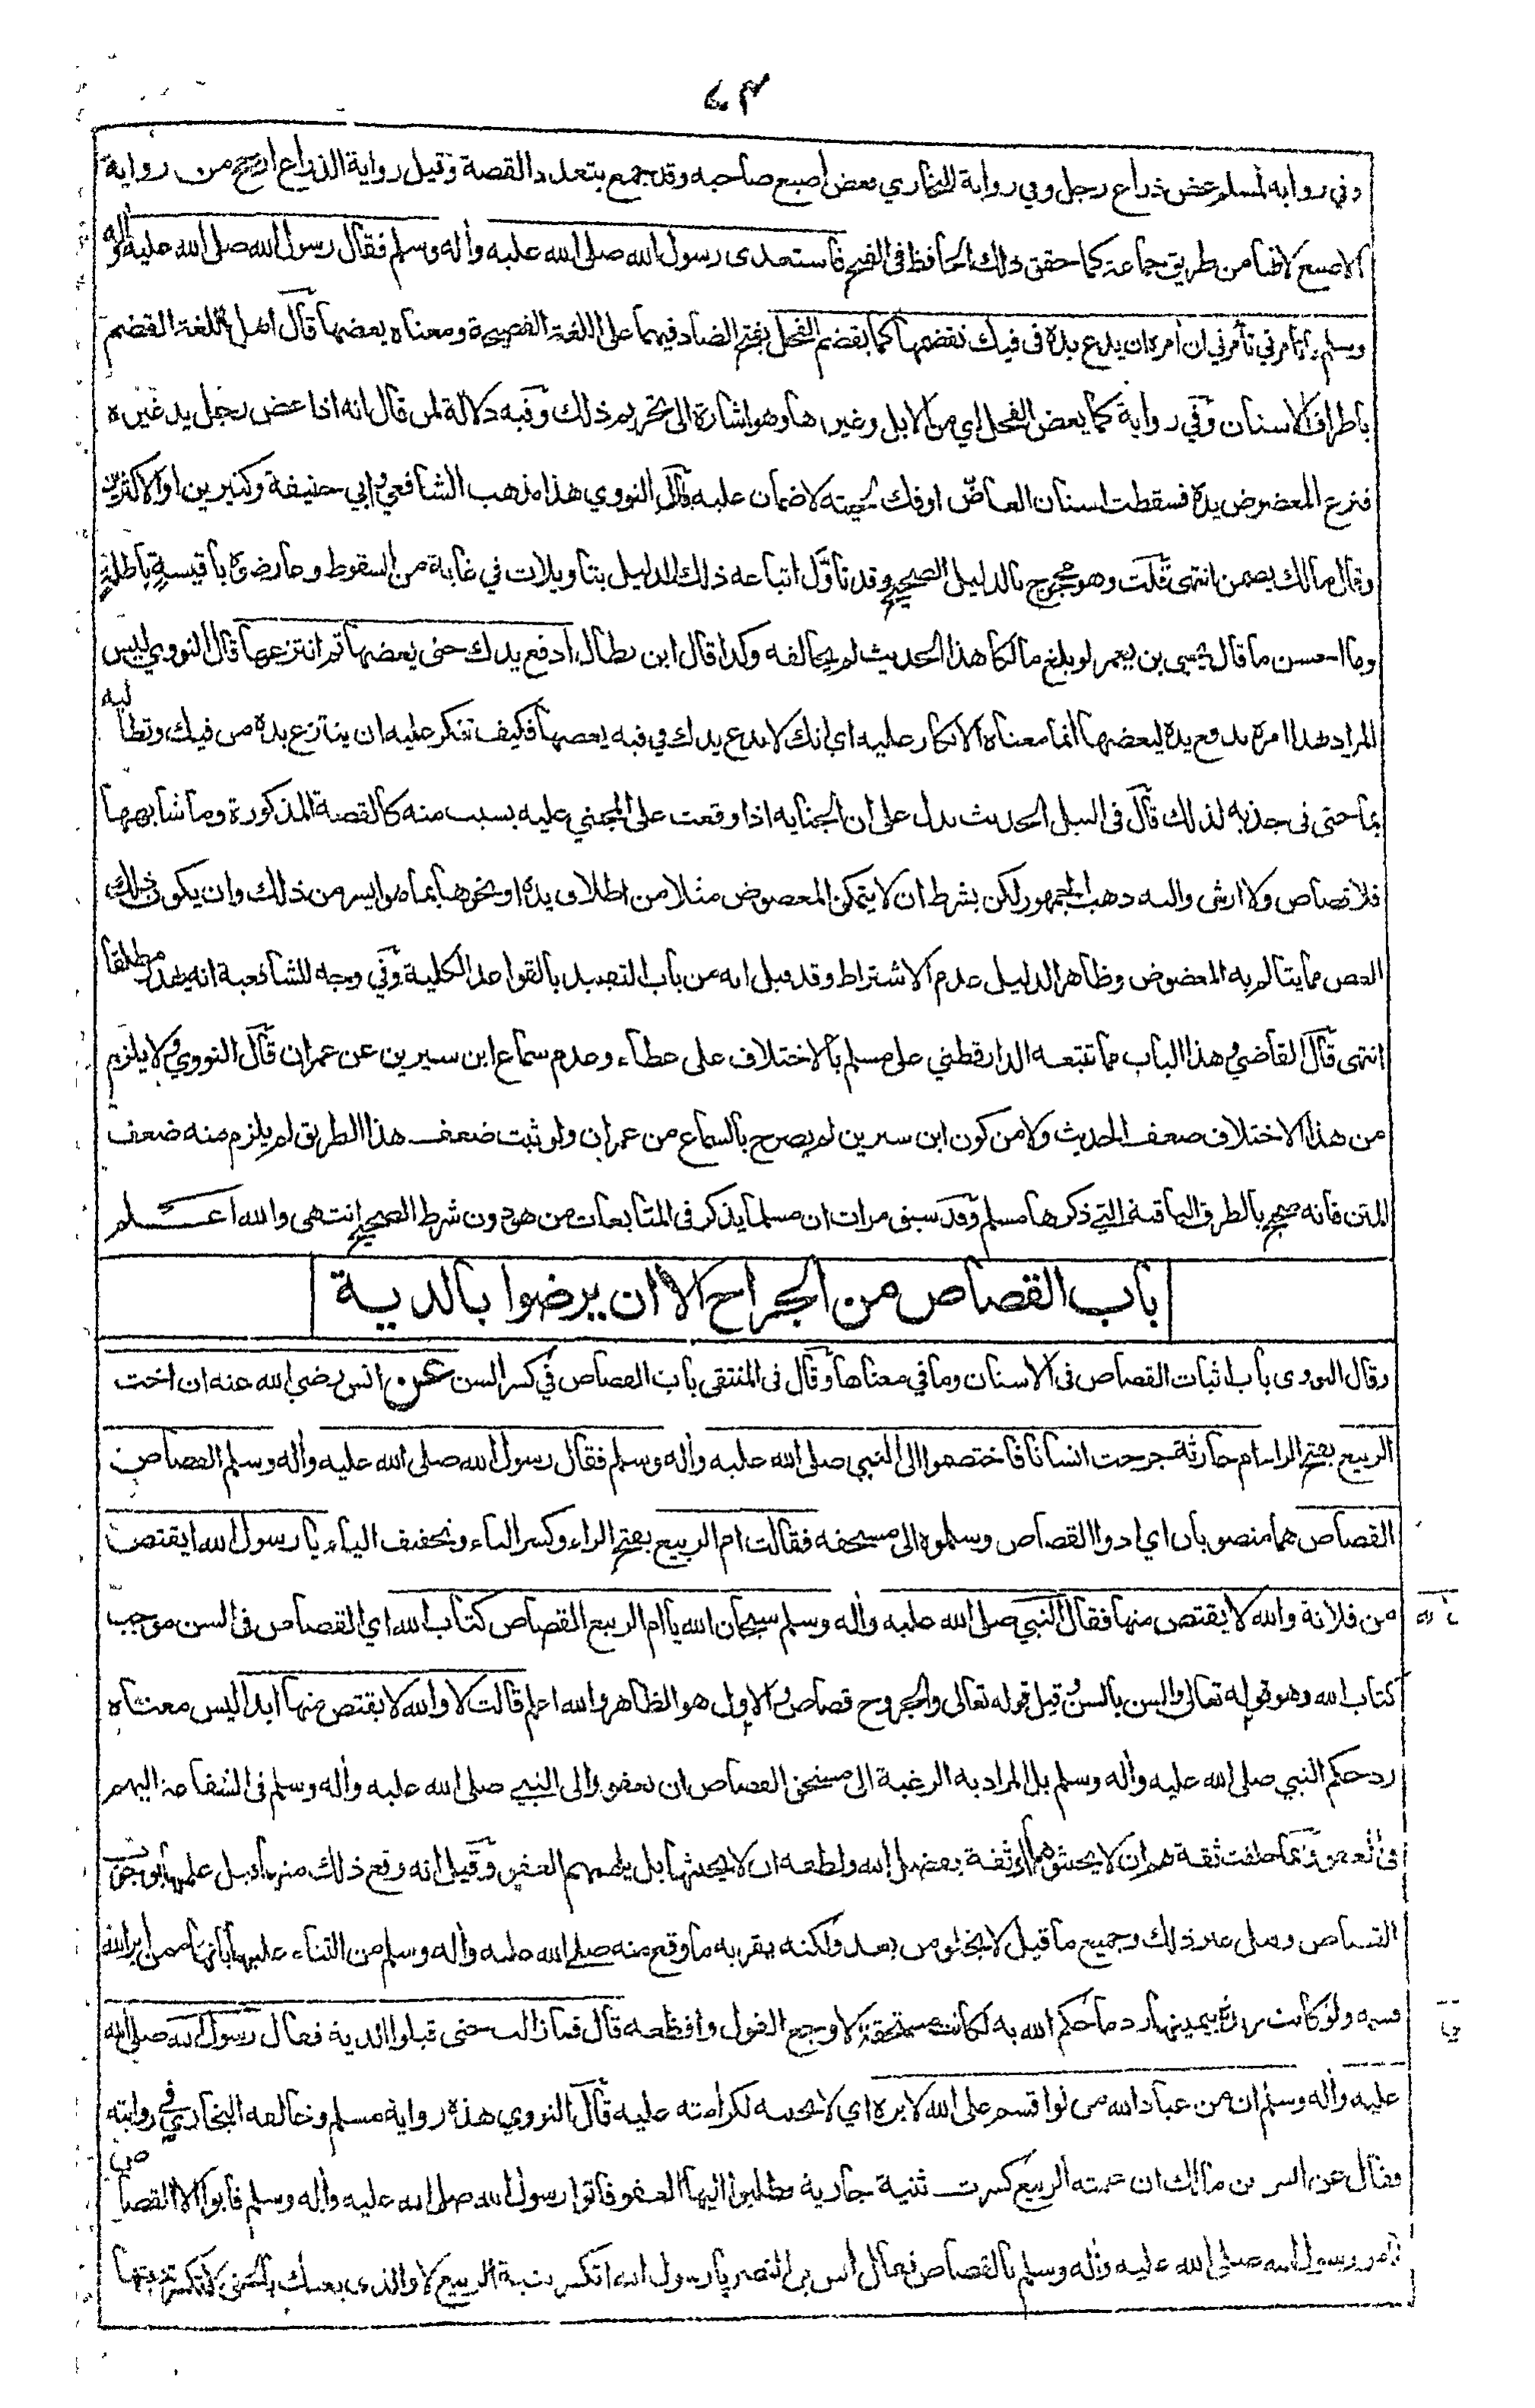 ٤٣
وفي رواية لمسلم عض ذراع رجل وفي رواية للبخاري فعض أصبع صاحبه وقد جمع بتعدد القصة وقيل رواية الذراع ارجح من رواية
الاصبع لانها من طريق جماعة كما حقق ذلك الحافظ في الفتح فاستعدى رسول الله صلى الله عليه وأله وسلم فقال رسول الله صلى الله عليه وأله
وسلم ما تأمرني تأمرني ان أمره ان يدع يده في فيك تقضمها كما يقضم الفحل بفتح الضاد فيهما على اللغة الفصيحة ومعناه يعضها قال اهل اللغة القضم
باطراف الاسنان وفي رواية كما يعض الفحل اي من الابل وغيرها وهو اشارة الى تحريم ذلك وفيه دلالة لمن قال انه اذا عض رجل يد غيره
فنزع المعضوض يده فسقطت اسنان العاض او فك لحيته لا ضمان عليه قال النووي هذا مذهب الشافعي وابي حنيفة وكثيرين او الاكثرين
وقال مالك يضمن انتهى قلت وهو محجوج بالدليل الصحيح وقد تأول اتباعه ذلك الدليل بتاويلات في غاية من السقوط وعارضوه باقيسة باطلة
وما احسن ما قال يحيى بن يعمر لو بلغ مالكا هذا الحديث لم يخالفه وكذا قال ابن بطال ادفع يدك حتى يعضها ثم انتزعها قال النووي ليس
المراد بهذا امره بدفع يده ليعضها انما معناه الانكار عليه اي انك لا تدع يدك في فيه يعضها فكيف تنكر عليه ان ينازع يده من فيك وتطالبه
بما جنى في جذبه لذلك قال في النيل الحديث يدل على ان الجناية اذا وقعت على المجني عليه بسبب منه كالقصة المذكورة وما شابهها
فلا قصاص ولا ارش واليه ذهب الجمهور لكن بشرط ان لا يتمكن المعضوض مثلا من اطلاق يده او نحوها بما هو ايسر من ذلك وان يكون ذلك
العض مما يتالم به المعضوض وظاهر الدليل عدم الاشتراط وقد قيل انه من باب التقييد بالقواعد الكلية وفي وجه للشافعية انه يهدر مطلقا
انتهى قال القاضي وهذا الباب مما تتبعه الدارقطني على مسلم بالاختلاف على عطاء وعدم سماع ابن سيرين عن عمران قال النووي ولا يلزم
من هذا الاختلاف ضعف الحديث ولا من كون ابن سيرين لم يصرح بالسماع من عمران ولو ثبت ضعف هذا الطريق لم يلزم منه ضعف
المتن فانه صحيح بالطرق الباقية التي ذكرها مسلم وقد سبق مرات ان مسلما يذكر في المتابعات من هو دون شرط الصحيح انتهى والله اعلم
باب القصاص من الجراح الا ان يرضوا بالدية
وقال النووي باب اثبات القصاص في الاسنان وما في معناها وقال في المنتقى باب القصاص في كسر السن عن انس رضي الله عنه ان اخت
الربيع بفتح الراء ام حارثة جرحت انسانا فاختصموا الى النبي صلى الله عليه وأله وسلم فقال رسول الله صلى الله عليه وأله وسلم القصاص
القصاص هما منصوبان اي ادوا القصاص وسلموه الى مستحقه فقالت ام الربيع بفتح الراء وكسر الباء وتخفيف الياء يا رسول الله ايقتص
من فلانة والله لا يقتص منها فقال النبي صلى الله عليه وأله وسلم سبحان الله يا ام الربيع القصاص كتاب الله اي القصاص في السن موجب
كتاب الله وهو قوله تعالى والسن بالسن وقيل قوله تعالى والجروح قصاص والاول هو الظاهر والله اعلم قالت لا والله لا يقتص منها ابدا ليس معناه
رد حكم النبي صلى الله عليه وأله وسلم بل المراد به الرغبة الى مستحق القصاص ان يعفو والى النبي صلى الله عليه وأله وسلم في الشفاعة اليهم
في العفو وانما حلفت ثقة بهم ان لا يحنثوها او ثقة بفضل الله ولطفه ان لا يحنثها بل يلهمهم العفو وقيل انه وقع ذلك منها قبل علمها بوجوب
القصاص وقيل غير ذلك وجميع ما قيل لا يخلو من بعد ولكنه يقربه ما وقع منه صلى الله عليه وأله وسلم من الثناء عليها بأنها ممن ابر الله
قسمه ولو كانت مريدة بيمينها رد ما حكم الله به لكانت مستحقة لاوجع القول وافظعه قال فما زالت حتى قبلوا الدية فقال رسول الله صلى الله
عليه وأله وسلم ان من عباد الله من لو اقسم على الله لابره اي لا يحنثه لكرامته عليه قال النووي هذه رواية مسلم وخالفه البخاري في روايته
فقال عن انس بن مالك ان عمته الربيع كسرت ثنية جارية فطلبوا اليها العفو فاتوا رسول الله صلى الله عليه وأله وسلم فابوا الا القصاص
فامر رسول الله صلى الله عليه وأله وسلم بالقصاص فقال انس بن النضر يا رسول الله اتكسر ثنية الربيع لا والذي بعثك بالحق لا تكسر ثنيتها